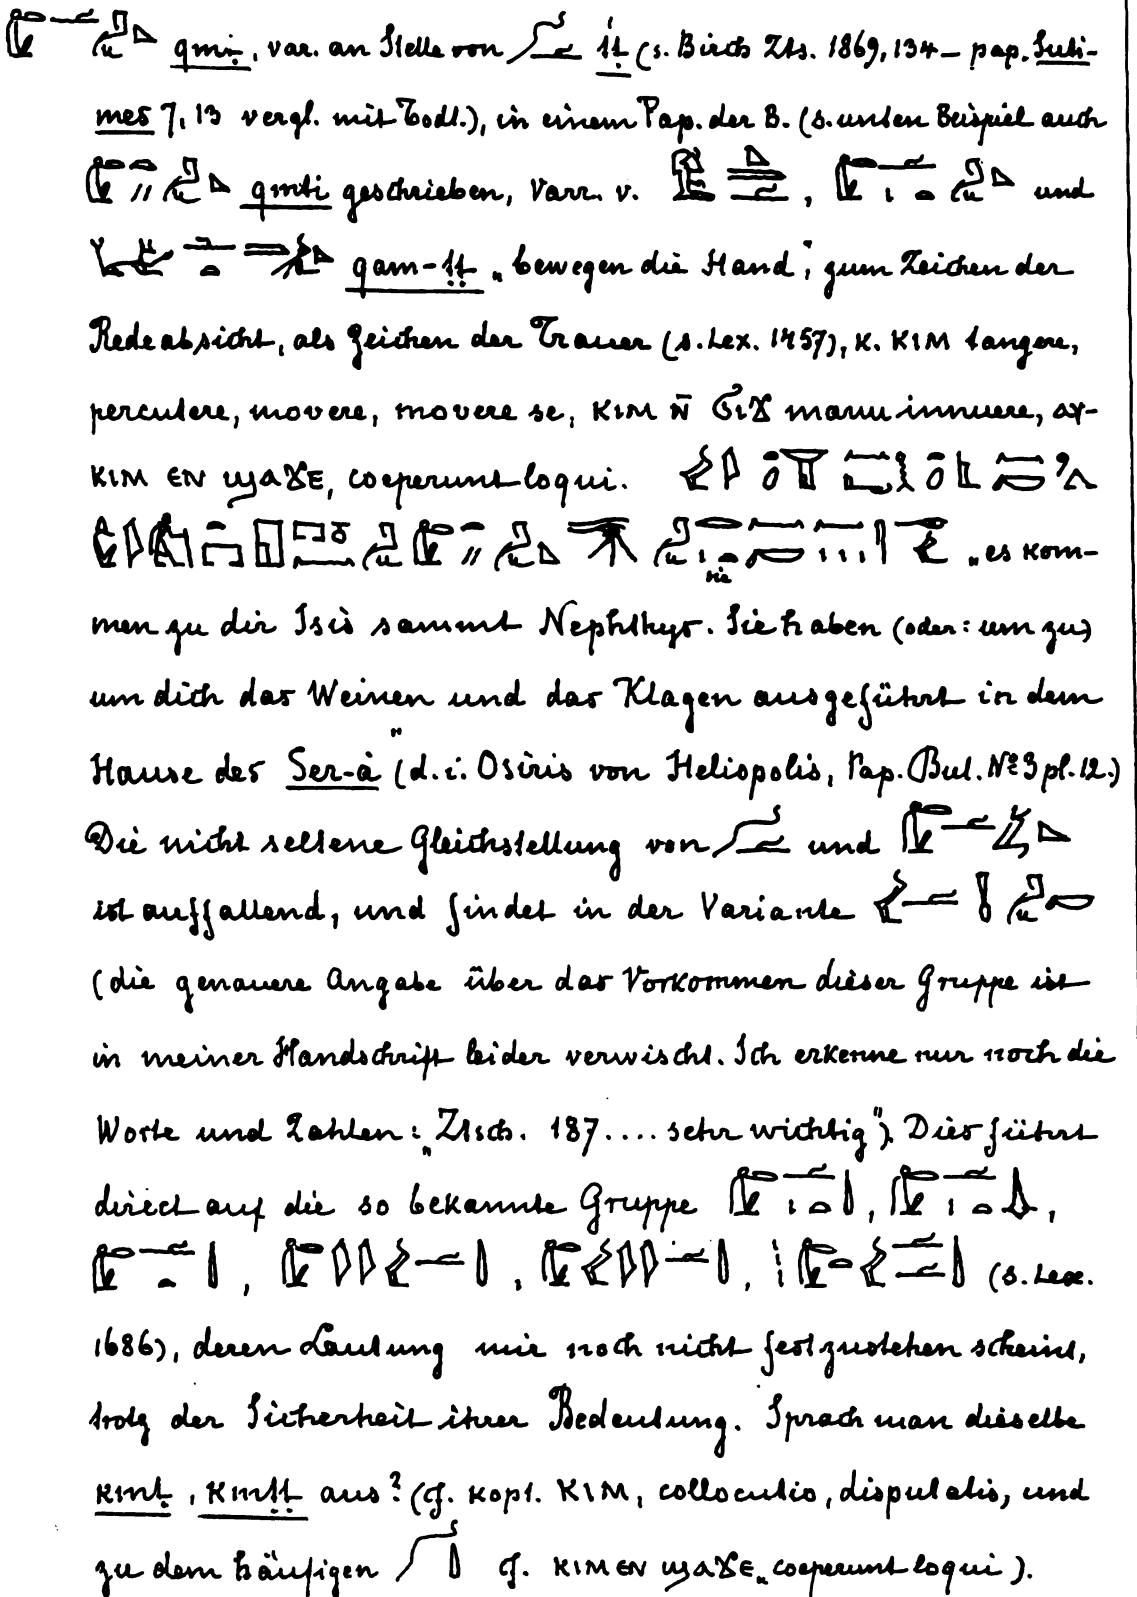 qmi, var. an Stelle von ṭṭ (s. Birch Zts. 1869, 134 – pap. Suti-
mes 7, 13 vergl. mit Todt.), in einem Pap. der B. (s. unten Beispiel auch
qmti geschrieben, Varr. v. , und
qam-ṭṭ „bewegen die Hand“, zum Zeichen der
Redeabsicht, als Zeichen der Trauer (s. Lex. 1457), K. ⲕⲓⲙ tangere,
percutere, movere, movere se, ⲕⲓⲙ ⲛ̄ ϭⲓϫ manu innuere, ⲁⲩ-
ⲕⲓⲙ ⲉⲛ ϣⲁϫⲉ, coeperunt loqui.
„es kom-
men zu dir Isis sammt Nephthys. Sie haben (oder: um zu)
um dich das Weinen und das Klagen ausgeführt in dem
Hause des Ser-à“ (d. i. Osiris von Heliopolis, Pap. Bul. № 3 pl. 12.)
Die nicht seltene Gleichstellung von und
ist auffallend, und findet in der Variante
(die genauere Angabe über das Vorkommen dieser Gruppe ist
in meiner Handschrift leider verwischt. Ich erkenne nur noch die
Worte und Zahlen: „Ztsch. 187.... sehr wichtig“). Dies führt
direct auf die so bekannte Gruppe , ,
, , , (s. Lex.
1686), deren Lautung mir noch nicht festzustehen scheint,
trotz der Sicherheit ihrer Bedeutung. Sprach man dieselbe
kmṭ, kmṭṭ aus? (cf. kopt. ⲕⲓⲙ, collocutio, disputatio, und
zu dem häufigen cf. ⲕⲓⲙ ⲉⲛ ϣⲁϫⲉ „coeperunt loqui).